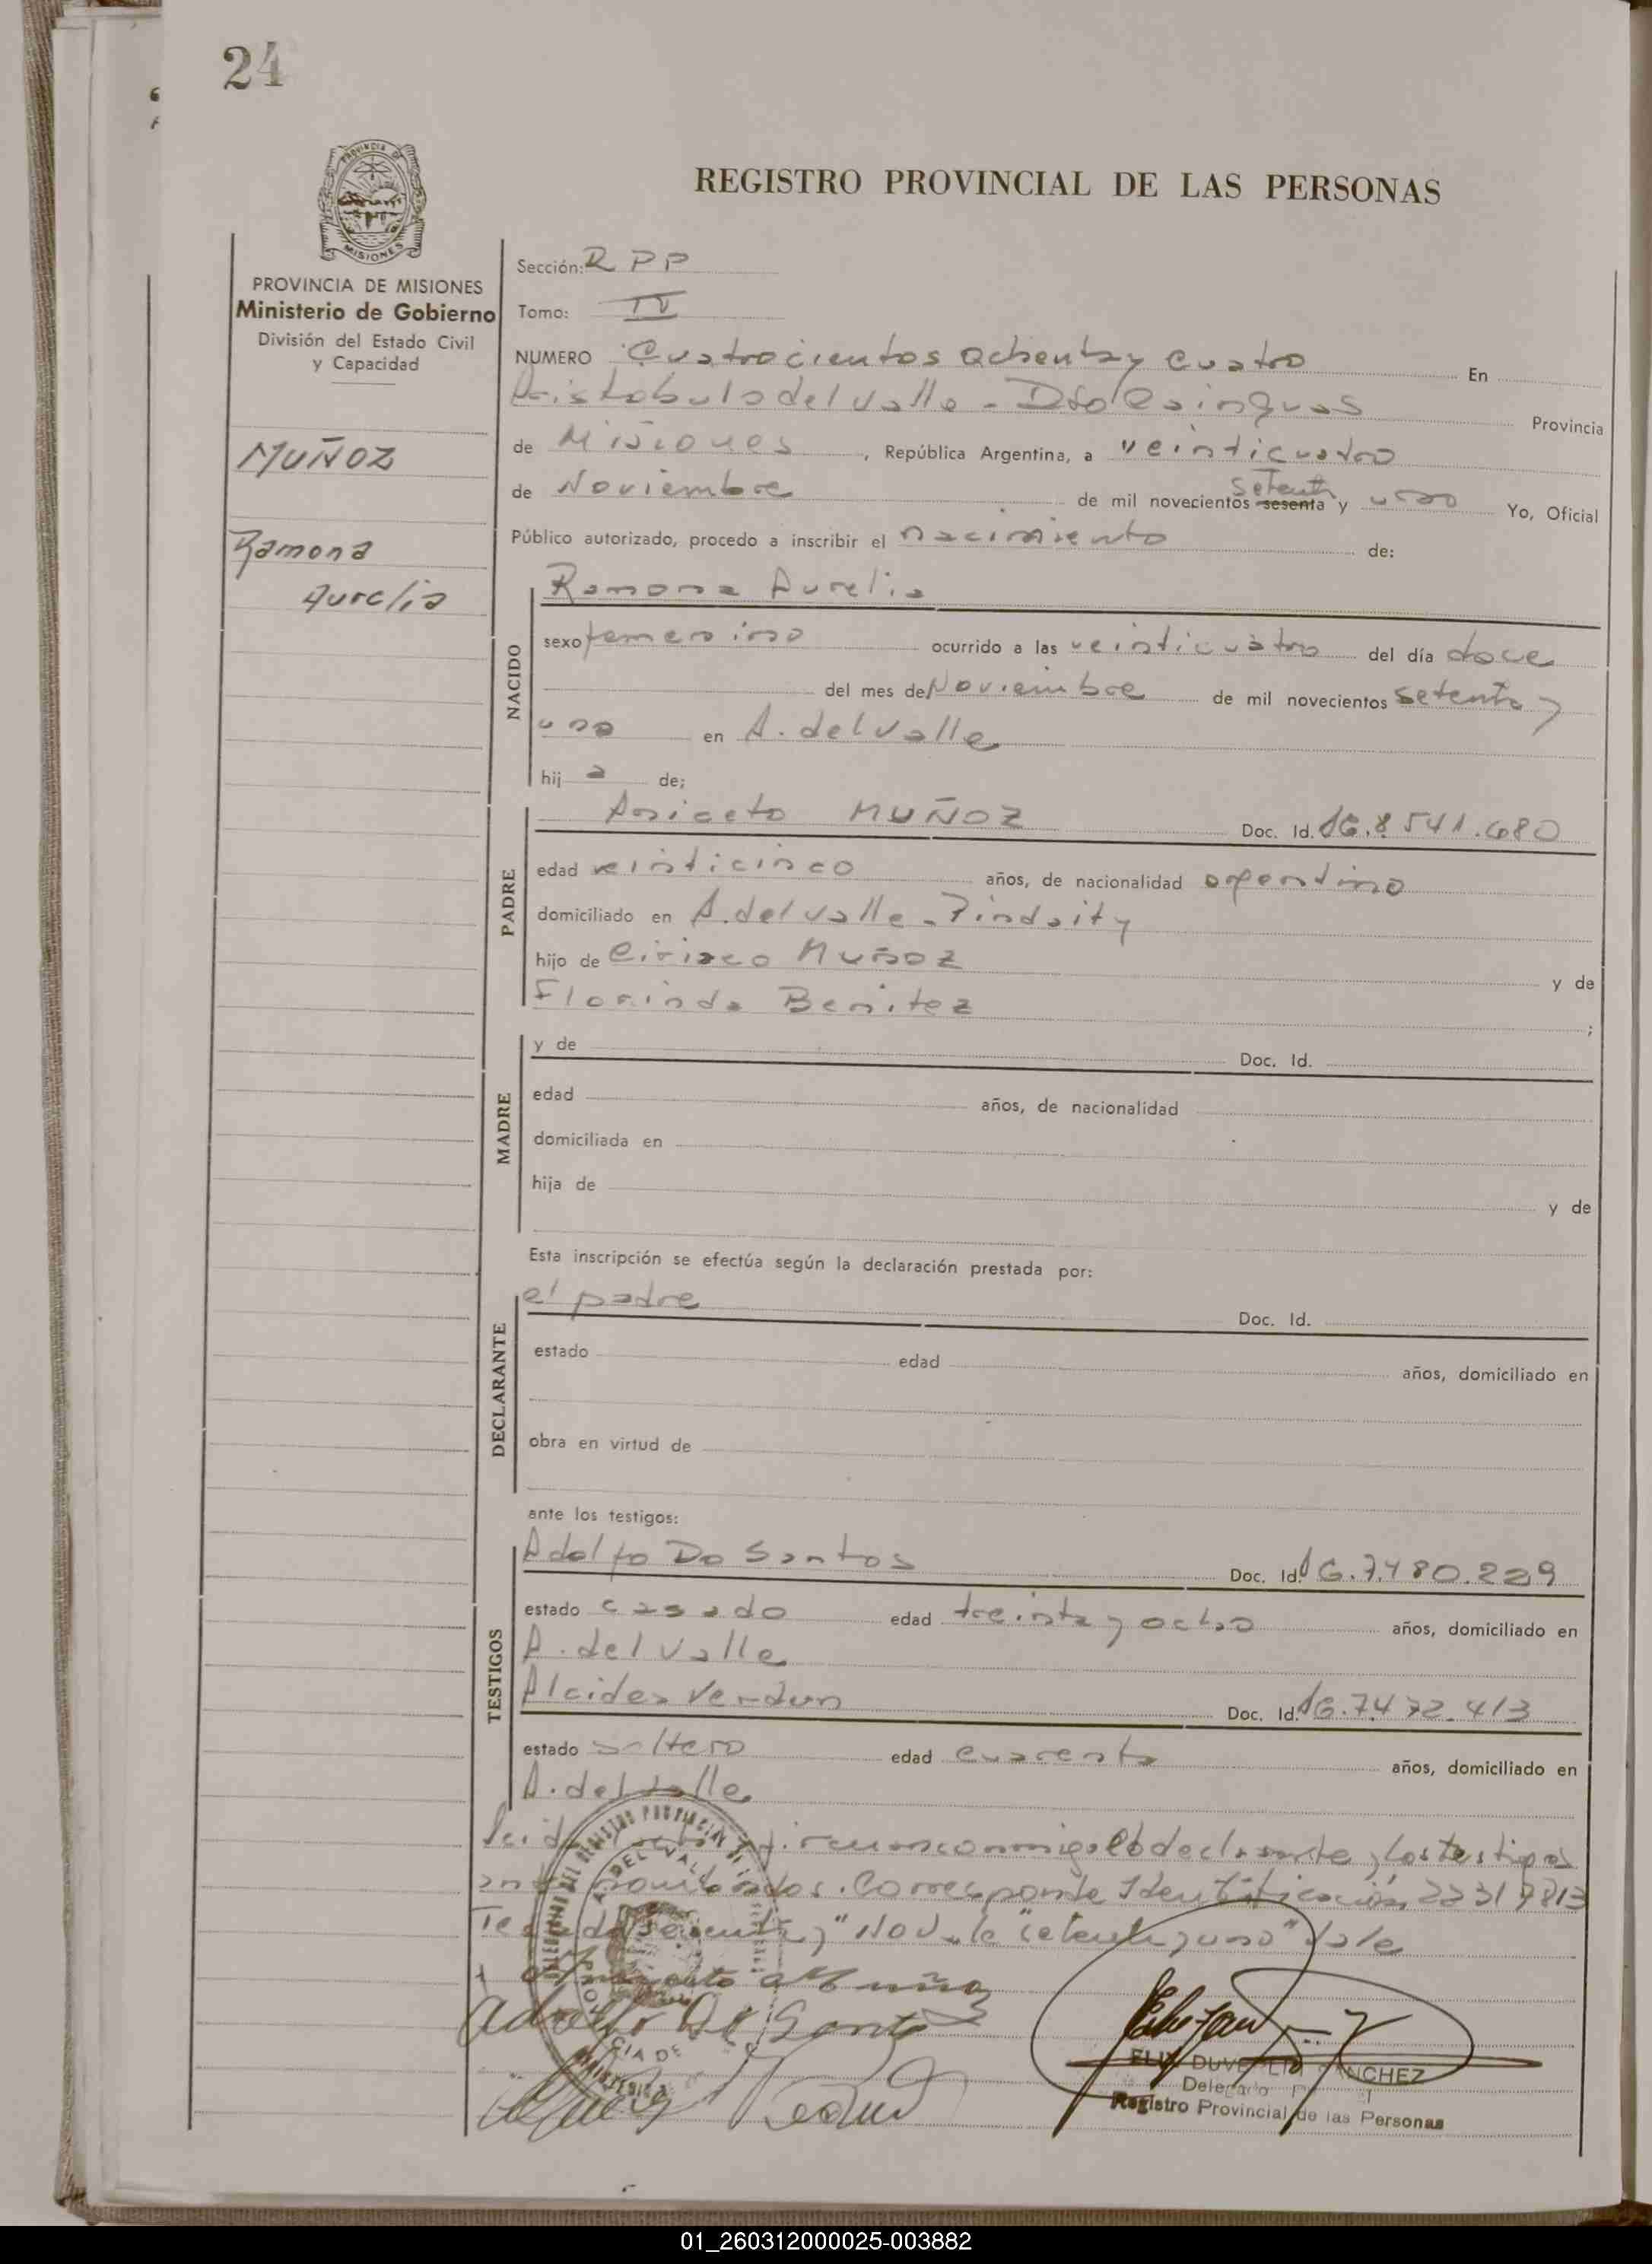 24
PROVINCIA DE
MISIONES
REGISTRO PROVINCIAL DE LAS PERSONAS
PROVINCIA DE MISIONES
Ministerio de Gobierno
División del Estado Civil
y Capacidad
MUÑOZ
Ramona
Aurelia
Sección: R P P
Tomo: IV
NUMERO Cuatrocientos ochenta y cuatro En
Aristobulo del Valle - Dto Cainguas Provincia
de Misiones, República Argentina, a veinticuatro
setenta
de Noviembre de mil novecientos sesenta y uno Yo, Oficial
Público autorizado, procedo a inscribir el nacimiento de:
NACIDO
Ramona Aurelia
sexo femenino ocurrido a las veinticuatro del día doce
del mes de Noviembre de mil novecientos setenta y
uno en A. del Valle
hij a de;
PADRE
Aniceto MUÑOZ Doc. Id. 8.541.680
edad veinticinco años, de nacionalidad argentino
domiciliado en A. del Valle - Pindaity
hijo de Ciriaco Muñoz y de
Florinda Benitez ;
MADRE
y de Doc. Id.
edad años, de nacionalidad
domiciliada en
hija de y de
Esta inscripción se efectúa según la declaración prestada por:
DECLARANTE
el padre Doc. Id.
estado edad años, domiciliado en
obra en virtud de
ante los testigos:
TESTIGOS
Adolfo Do Santos Doc. Id. 7.480.229
estado casado edad treinta y ocho años, domiciliado en
A. del Valle
Alcides Verdun Doc. Id. 7.472.413
estado soltero edad cuarenta años, domiciliado en
A. del Valle
Leida conmigo el declarante y los testigos
Corresponde Identificación 22317813
"No Vale "setenta y uno" Vale
Adolfo Do Santo
DUVE SANCHEZ
Delegado
Registro Provincial de las Personas
01_260312000025-003882